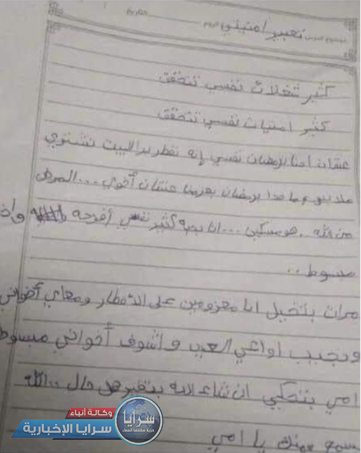 تعبير امنيتي
كثير شغلات نفسي تتحقق
كثير امنيات نفسي تتحقق
عشان احنا برمضان نفسي إنه نفطر بالبيت نشتوي
ملابس ما حدا برمضان يعزمنا عشان أخوي ... المرض
من الله . هو مسكين ... انا بحبه كثير نفسي أفرحه
مبسوط ..
مرات بتخيل انا معزومين على الافطار ومعاي أخواتي
ونجيب اواعي العيد واشوف أخواتي مبسوط
امي بتحكي ان شاء الله بتفرجها ... الله
يسمع منك يا امي
وكالة أنباء
سرايا الإخبارية